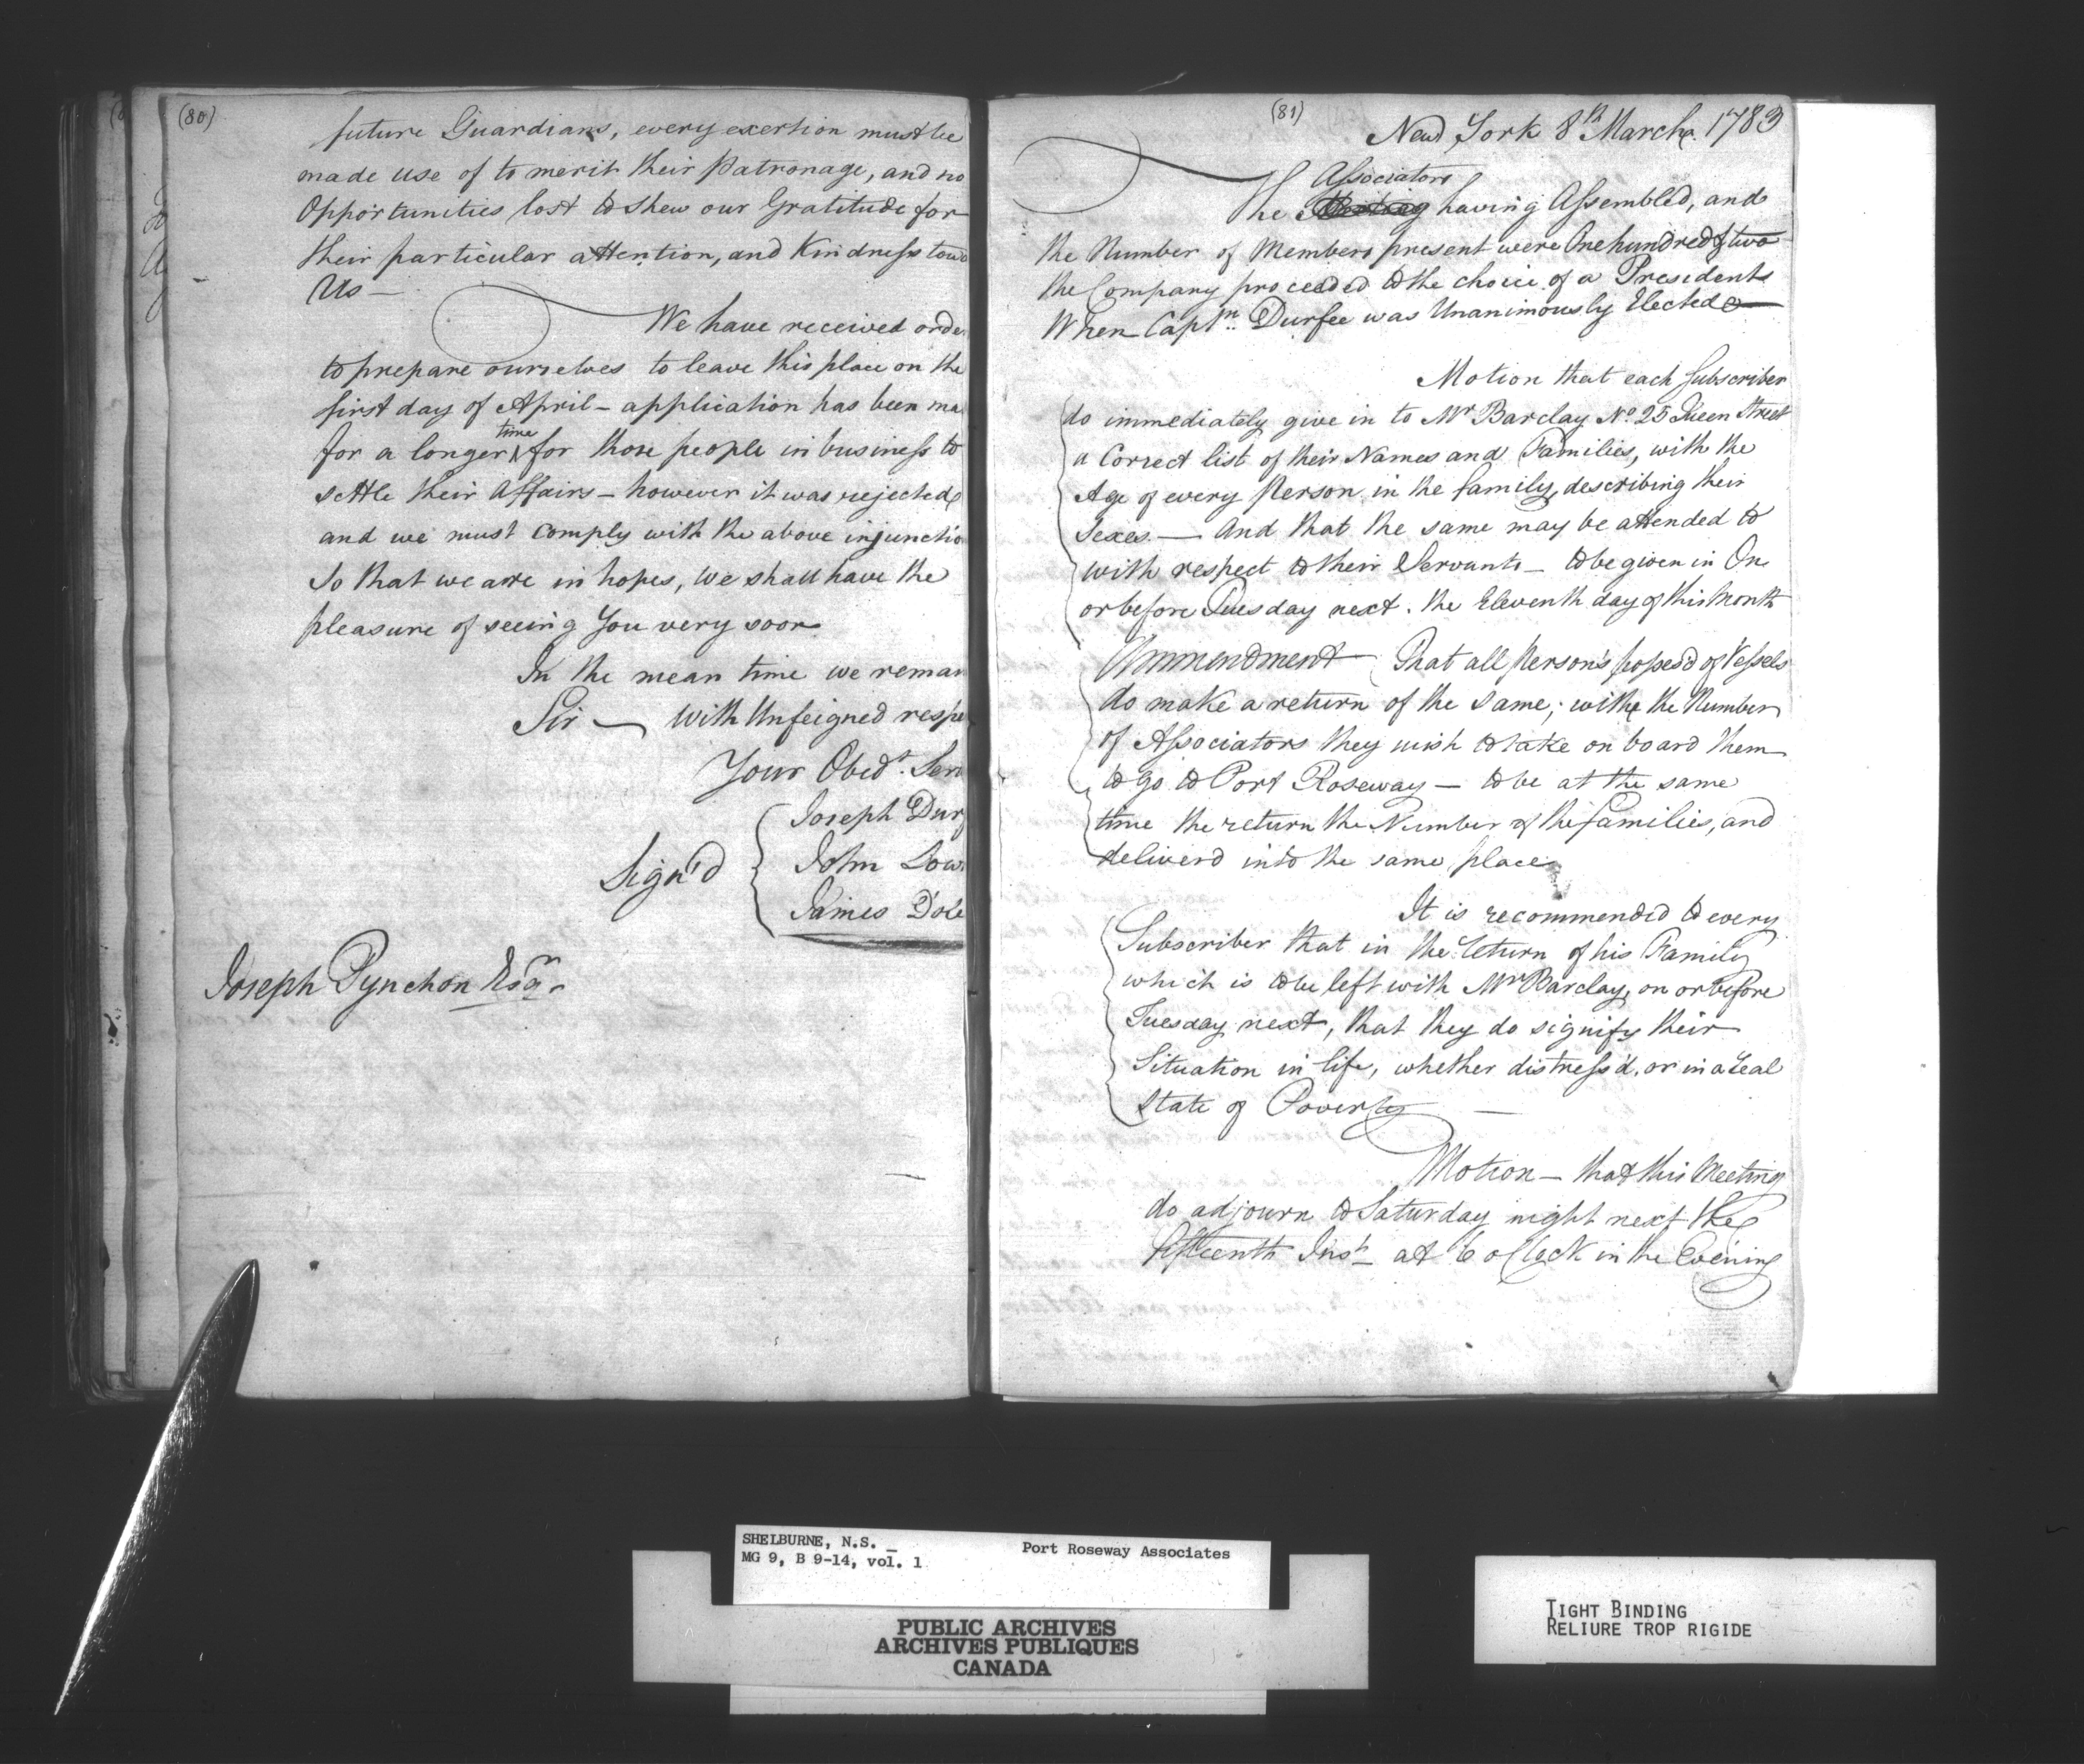 (80)
future Guardians, every exertion must be
made use of to merit their Patronage, and no
Opportunities lost to shew our Gratitude for
their particular attention, and Kindness tow
Us —
We have received orde
to prepare ourselves to leave this place on the
first day of April – application has been ma
for a longer time for those people in business to
settle their Affairs – however it was rejected
and we must comply with the above injunctio
So that we are in hopes, We shall have the
pleasure of seeing You very soon
In the mean time we reman
Sir — With Unfeigned respe
Your Obedt. Serv
Joseph Durf
Sign'd
John Low
James Dole
Joseph Pynchon Esqr.
(81)
New York 8th March 1783
Associators
The having Assembled, and
the Number of Members present were One hundred & two
the Company proceeded to the choice of a President
When Captn. Durfee was Unanimously Elected
Motion that each Subscriber
do immediately give in to Mr Barclay No. 25 Queen Street
a Correct list of their Names and Families, with the
Age of every Person in the family, describing their
Sexes. — And that the same may be attended to
with respect to their Servants – to be given in On
or before Tuesday next. the Eleventh day of this Month
Ammendment That all Person's posses'd of Vessels
do make a return of the same; with the Number
of Associators they wish to take on board them
to go to Port Roseway – to be at the same
time the return the Number of the families, and
deliverd into the same place
It is recommended to every
Subscriber that in the return of his Family
which is to be left with Mr Barclay, on or before
Tuesday next, that they do signify their
Situation in life, whether distress'd, or in a real
State of Poverty —
Motion – that this Meeting
do adjourn to Saturday night next the
fifteenth Inst – at 6 oClock in the Evening
SHELBURNE, N.S. –
MG 9, B 9-14, vol. 1
Port Roseway Associates
PUBLIC ARCHIVES
ARCHIVES PUBLIQUES
CANADA
TIGHT BINDING
RELIURE TROP RIGIDE